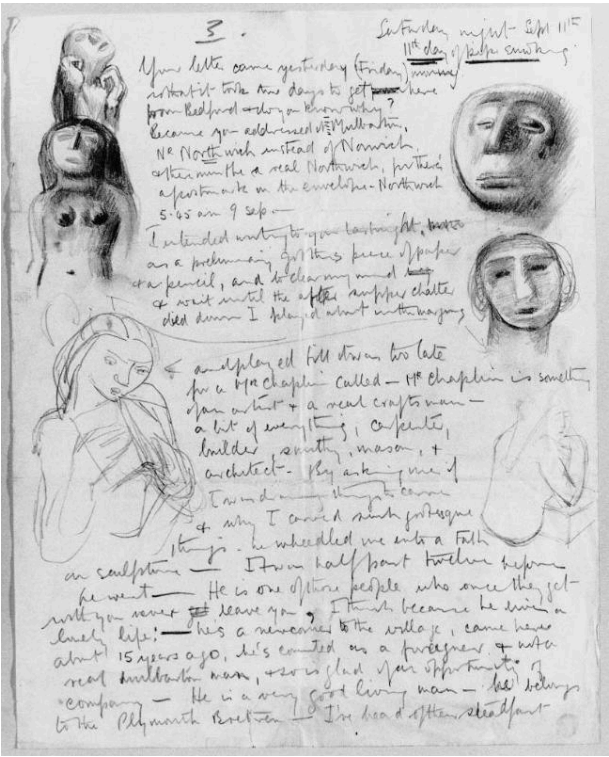 3.
Saturday night Sept 11th
11th day of pipe smoking.
Your letter came yesterday (Friday) morning
so that it took two days to get here
from Bedford & do you know why?
Because you addressed it Mulbarton,
Nr. Northwich instead of Norwich,
& there must be a real Northwich, for there's
a postmark on the envelope - Northwich
5.45 am 9 Sep. —
I intended writing to you last night,
as a preliminary got this piece of paper
& a pencil, and to clear my mind
& wait until the after supper chatter
died down I played about in the margins
and played till it was too late
for a Mr Chaplin called — Mr Chaplin is something
of an artist & a real craftsman —
a bit of everything, carpenter,
builder, smithy, mason, &
architect - By asking me if
I was drawing things to carve
& why I carved such grotesque
things - he wheedled me into a talk
on sculpture — It was half past twelve before
he went — He is one of those people who once they get
with you never leave you, I think because he lives a
lonely life; — he's a newcomer to the village, came here
about 15 years ago, he's counted as a foreigner & not a
real Mulbarton man, & so is glad of an opportunity of
company — He is a very good living man — he belongs
to the Plymouth Bretren — I've heard of their steadfast